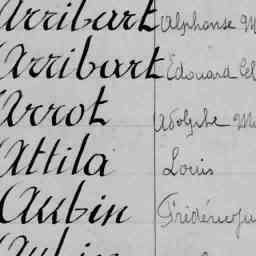 Arribart Alphonse M
Arribart Edouard Cel
Arrot Adolphe Ma
Attila Louis
Aubin Frédéric Ju
Aubin